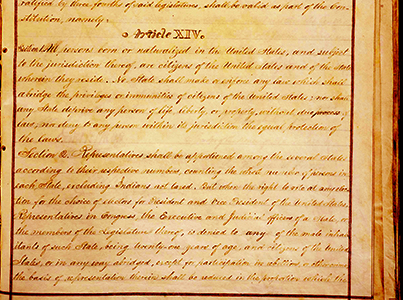 ratified by three-fourths of said legislatures, shall be valid as part of the Con-
stitution, namely:
Article XIV.
Section 1. All persons born or naturalized in the United States, and subject
to the jurisdiction thereof, are citizens of the United States and of the State
wherein they reside. No State shall make or enforce any law which shall
abridge the privileges or immunities of citizens of the United States; nor shall
any State deprive any person of life, liberty, or property, without due process of
law, nor deny to any person within its jurisdiction the equal protection of
the laws.
Section 2. Representatives shall be apportioned among the several States
according to their respective numbers, counting the whole number of persons in
each State, excluding Indians not taxed. But when the right to vote at any elec-
tion for the choice of electors for President and Vice President of the United States,
Representatives in Congress, the Executive and Judicial officers of a State, or
the members of the Legislature thereof, is denied to any of the male inhabi-
tants of such State, being twenty-one years of age, and citizens of the United
States, or in any way abridged, except for participation in rebellion, or other crime,
the basis of representation therein shall be reduced in the proportion which the